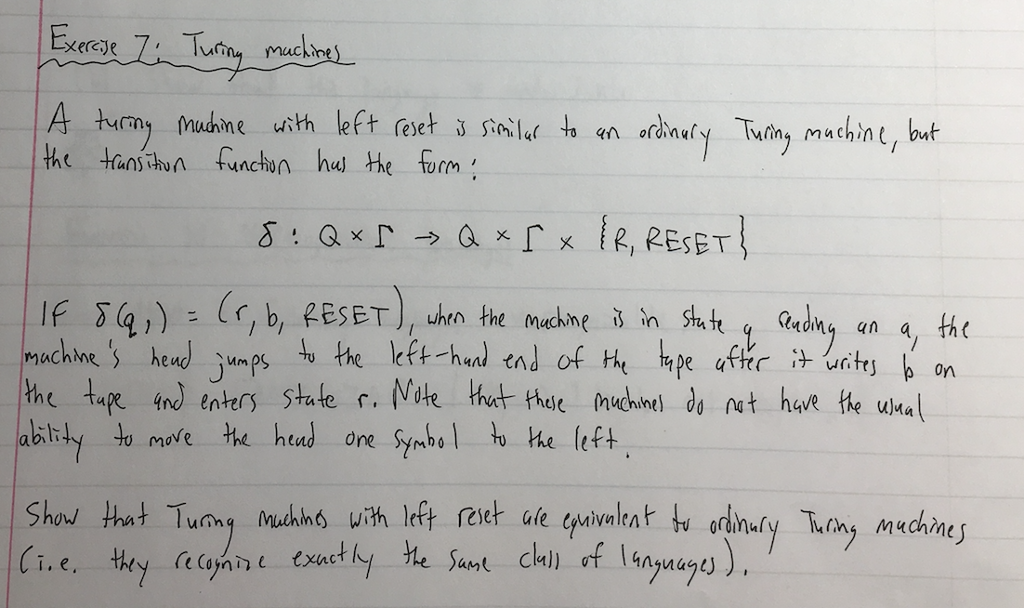 Exercise 7: Turing machines
A turing machine with left reset is similar to an ordinary Turing machine, but
the transition function has the form:
δ: Q × Γ → Q × Γ × {R, RESET}
IF δ(q,) = (r, b, RESET), when the machine is in state q reading an a, the
machine's head jumps to the left-hand end of the tape after it writes b on
the tape and enters state r. Note that these machines do not have the usual
ability to move the head one symbol to the left.
Show that Turing machines with left reset are equivalent to ordinary Turing machines
(i.e. they recognize exactly the same class of languages).